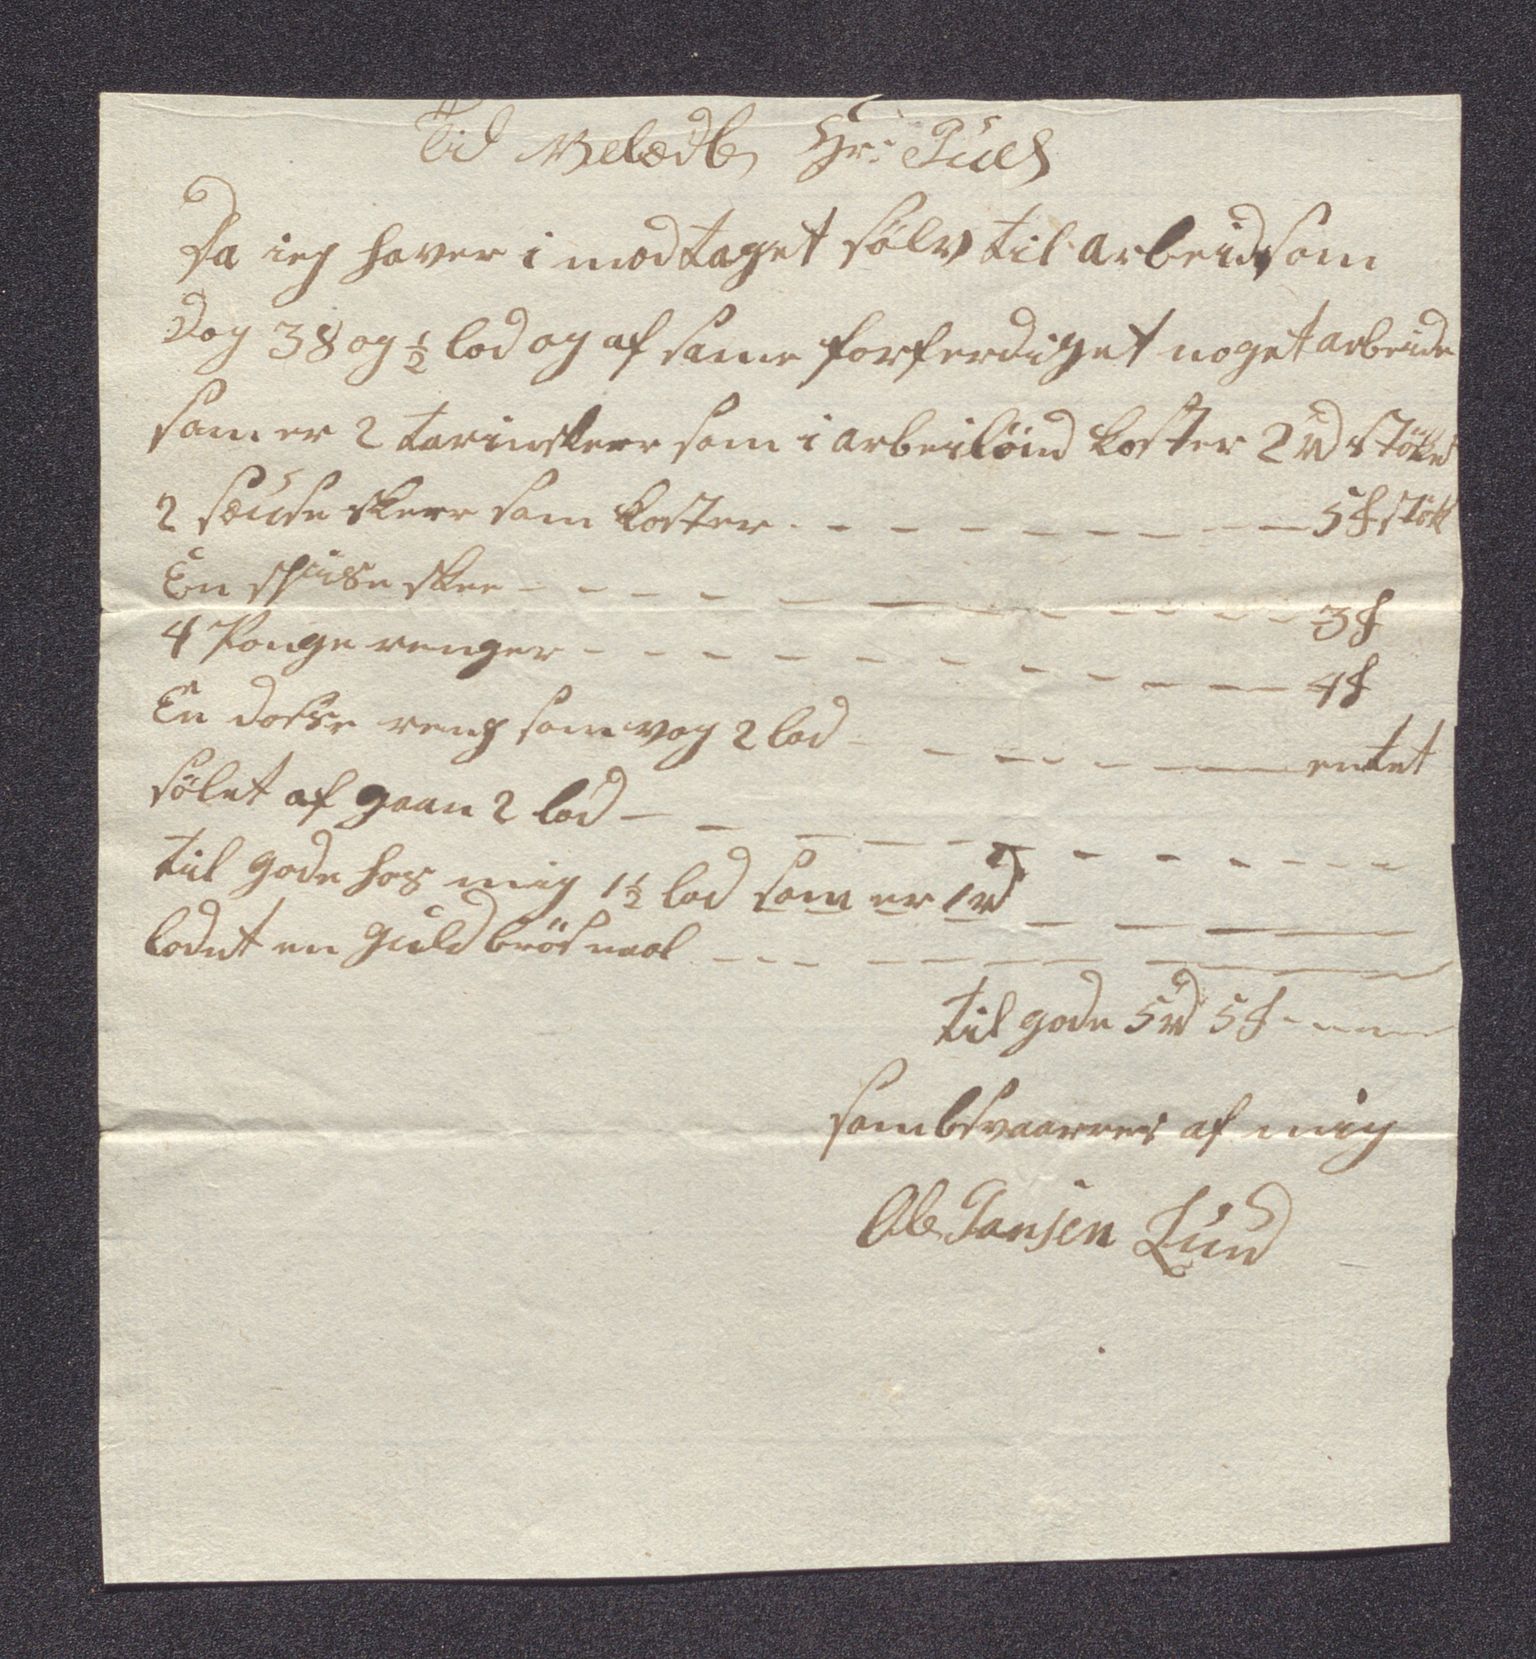 Til Velædle Hr: Juel
Da ieg haver i modtaget sølv til arbeid som
Dog 38 og ½ lod og af same forferdiget noget arbeide
som er 2 tarinskeer som i arbeislöind koster 2 rd stöket
2 sæuse skeer som koster - - - - - - - - 5 ß stök
En spiise skee - - - - - - - - - - - 3 ß
4 Ponge renger - - - - - - - - - - 4 ß
En dosse reng som vog 2 lod - - - - - - entet
sölet af gaan 2 lod - - - - - - - - - - -
til gode hos mig 1½ lod som er 1 rd - - - - -
lodet en Guld brösnaal - - - - - - - - -
til gode 5 rd 5 ß - - - -
som besvaarres af mig
Ole Jansen Lund